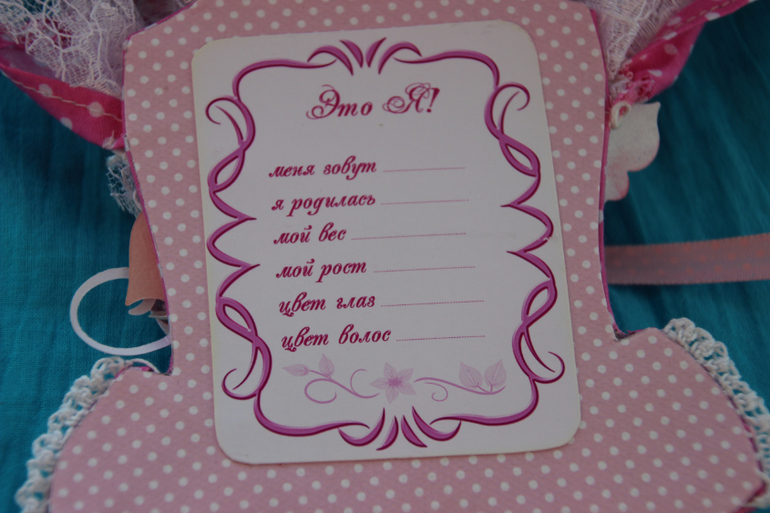 Это Я!
меня зовут
я родилась
мой вес
мой рост
цвет глаз
цвет волос